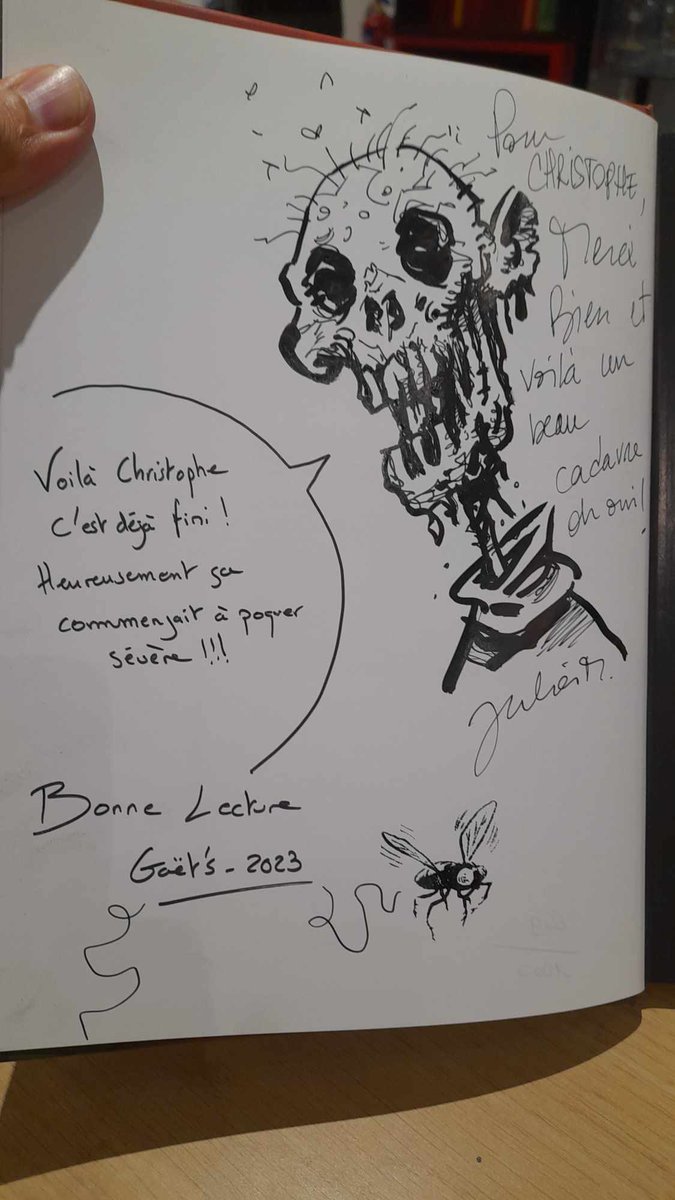 Pour
CHRISTOPHE,
Merci
Bien et
voilà un
beau
cadavre
oh oui!
Voilà Christophe
C'est déjà fini !
Heureusement ça
commençait à poquer
sévère !!!
Bonne Lecture
Gaët's - 2023